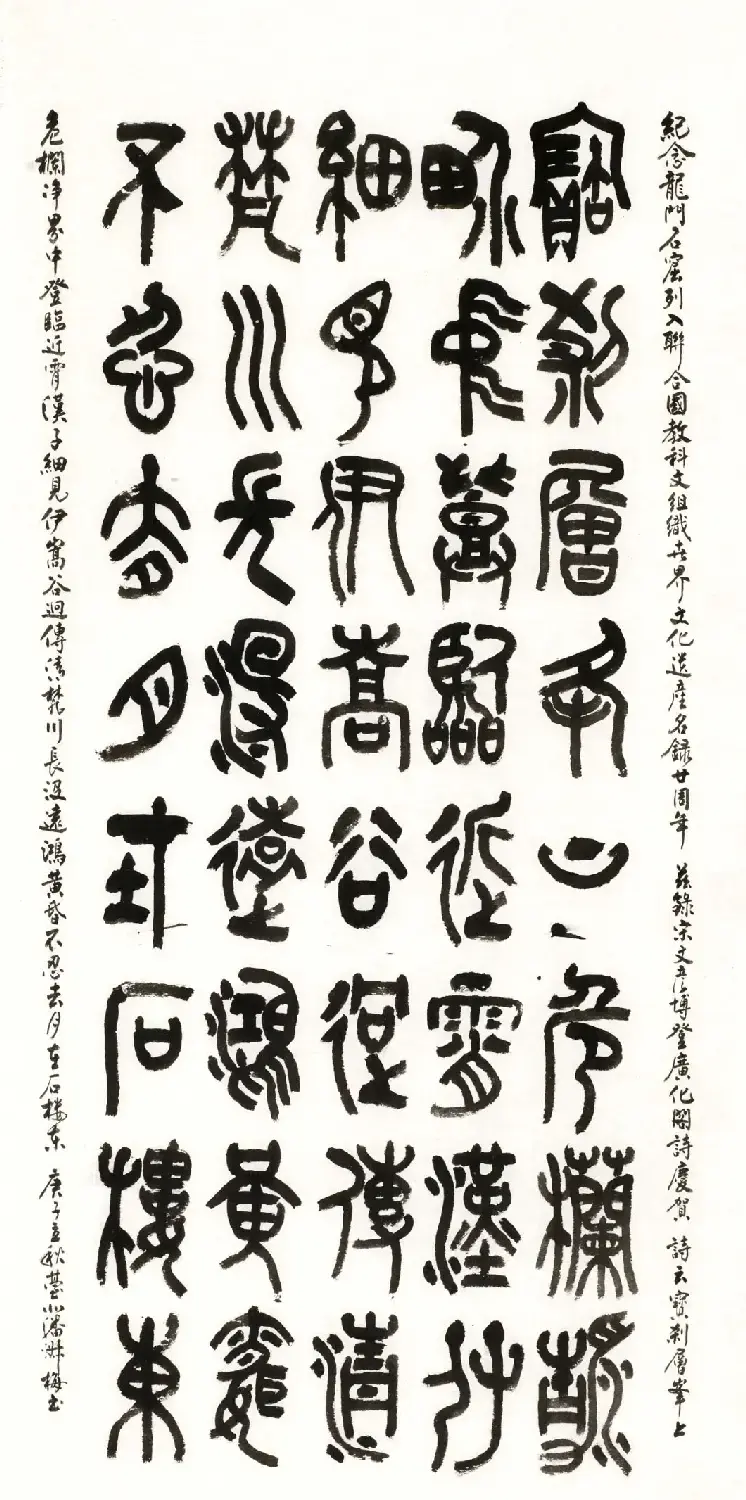 紀念龍門石窟列入聯合國教科文組織世界文化遺產名錄廿周年 茲錄宋文彥博登廣化閣詩慶賀 詩云寶刹層峯上
寶刹層夆上危欄靜
界中登臨近霄漢仔
細見伊嵩谷迥傳清
梵川長沒遠鴻黃昏
不忍去月在石樓東
危欄淨界中登臨近霄漢子細見伊嵩谷迥傳清梵川長沒遠鴻黃昏不忍去月在石樓東 庚子立秋潘梅书